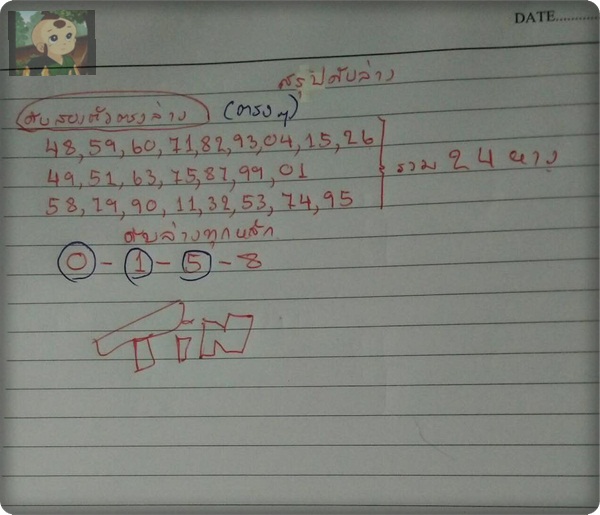 DATE............
สรุปดับล่าง
ดับสองตัวตรงล่าง (ตรงๆ)
48, 59, 60, 71, 82, 93, 04, 15, 26
49, 51, 63, 75, 87, 99, 01
58, 79, 90, 11, 32, 53, 74, 95
รวม 24 หาง
ดับล่างทุกหลัก
0 - 1 - 5 - 8
TiN